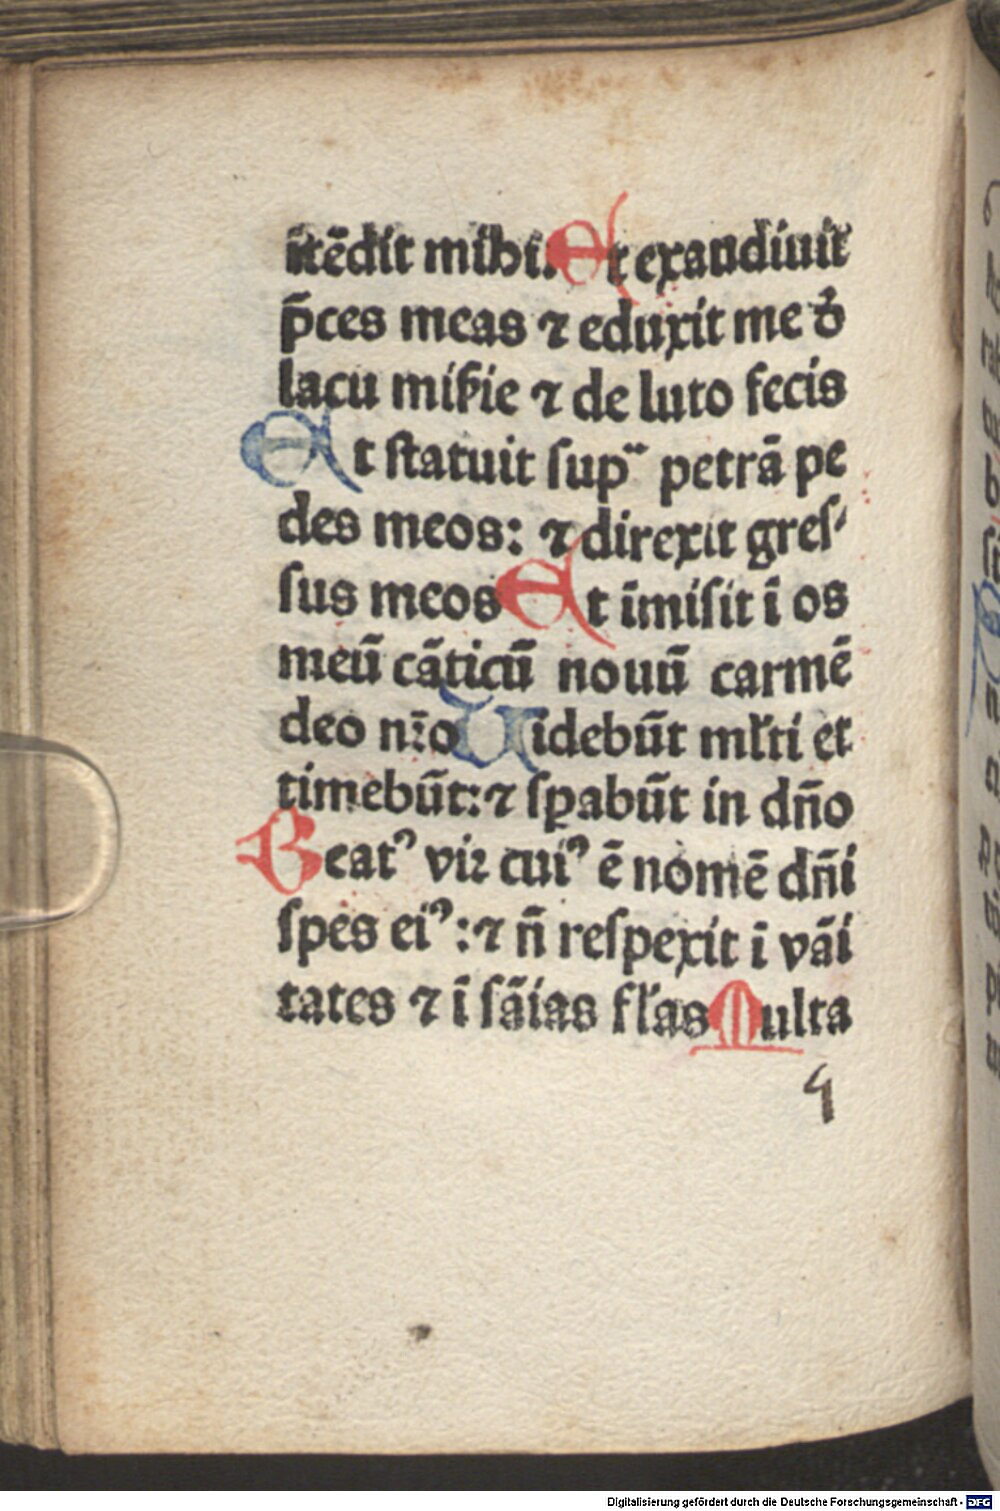 ītēdit mihi. Et exaudiuit
p̄ces meas ⁊ eduxit me đ
lacu miẜie ⁊ de luto fecis
Et ſtatuit ſupᷓ petrā pe
des meos: ⁊ direxit greſ⸗
ſus meos Et īmiſit ī os
meū cāticū nouū carmē
deo nr̄o Uidebūt ml̄ti et
timebūt: ⁊ ſꝑabūt in dn̄o
Beatꝰ vir cuiꝰ ē nomē dn̄i
ſpes eiꝰ: ⁊ n̄ reſpexit ī vāi
tates ⁊ ī ſāias fl̄as Multa
Digitalisierung gefördert durch die Deutsche Forschungsgemeinschaft - DFG